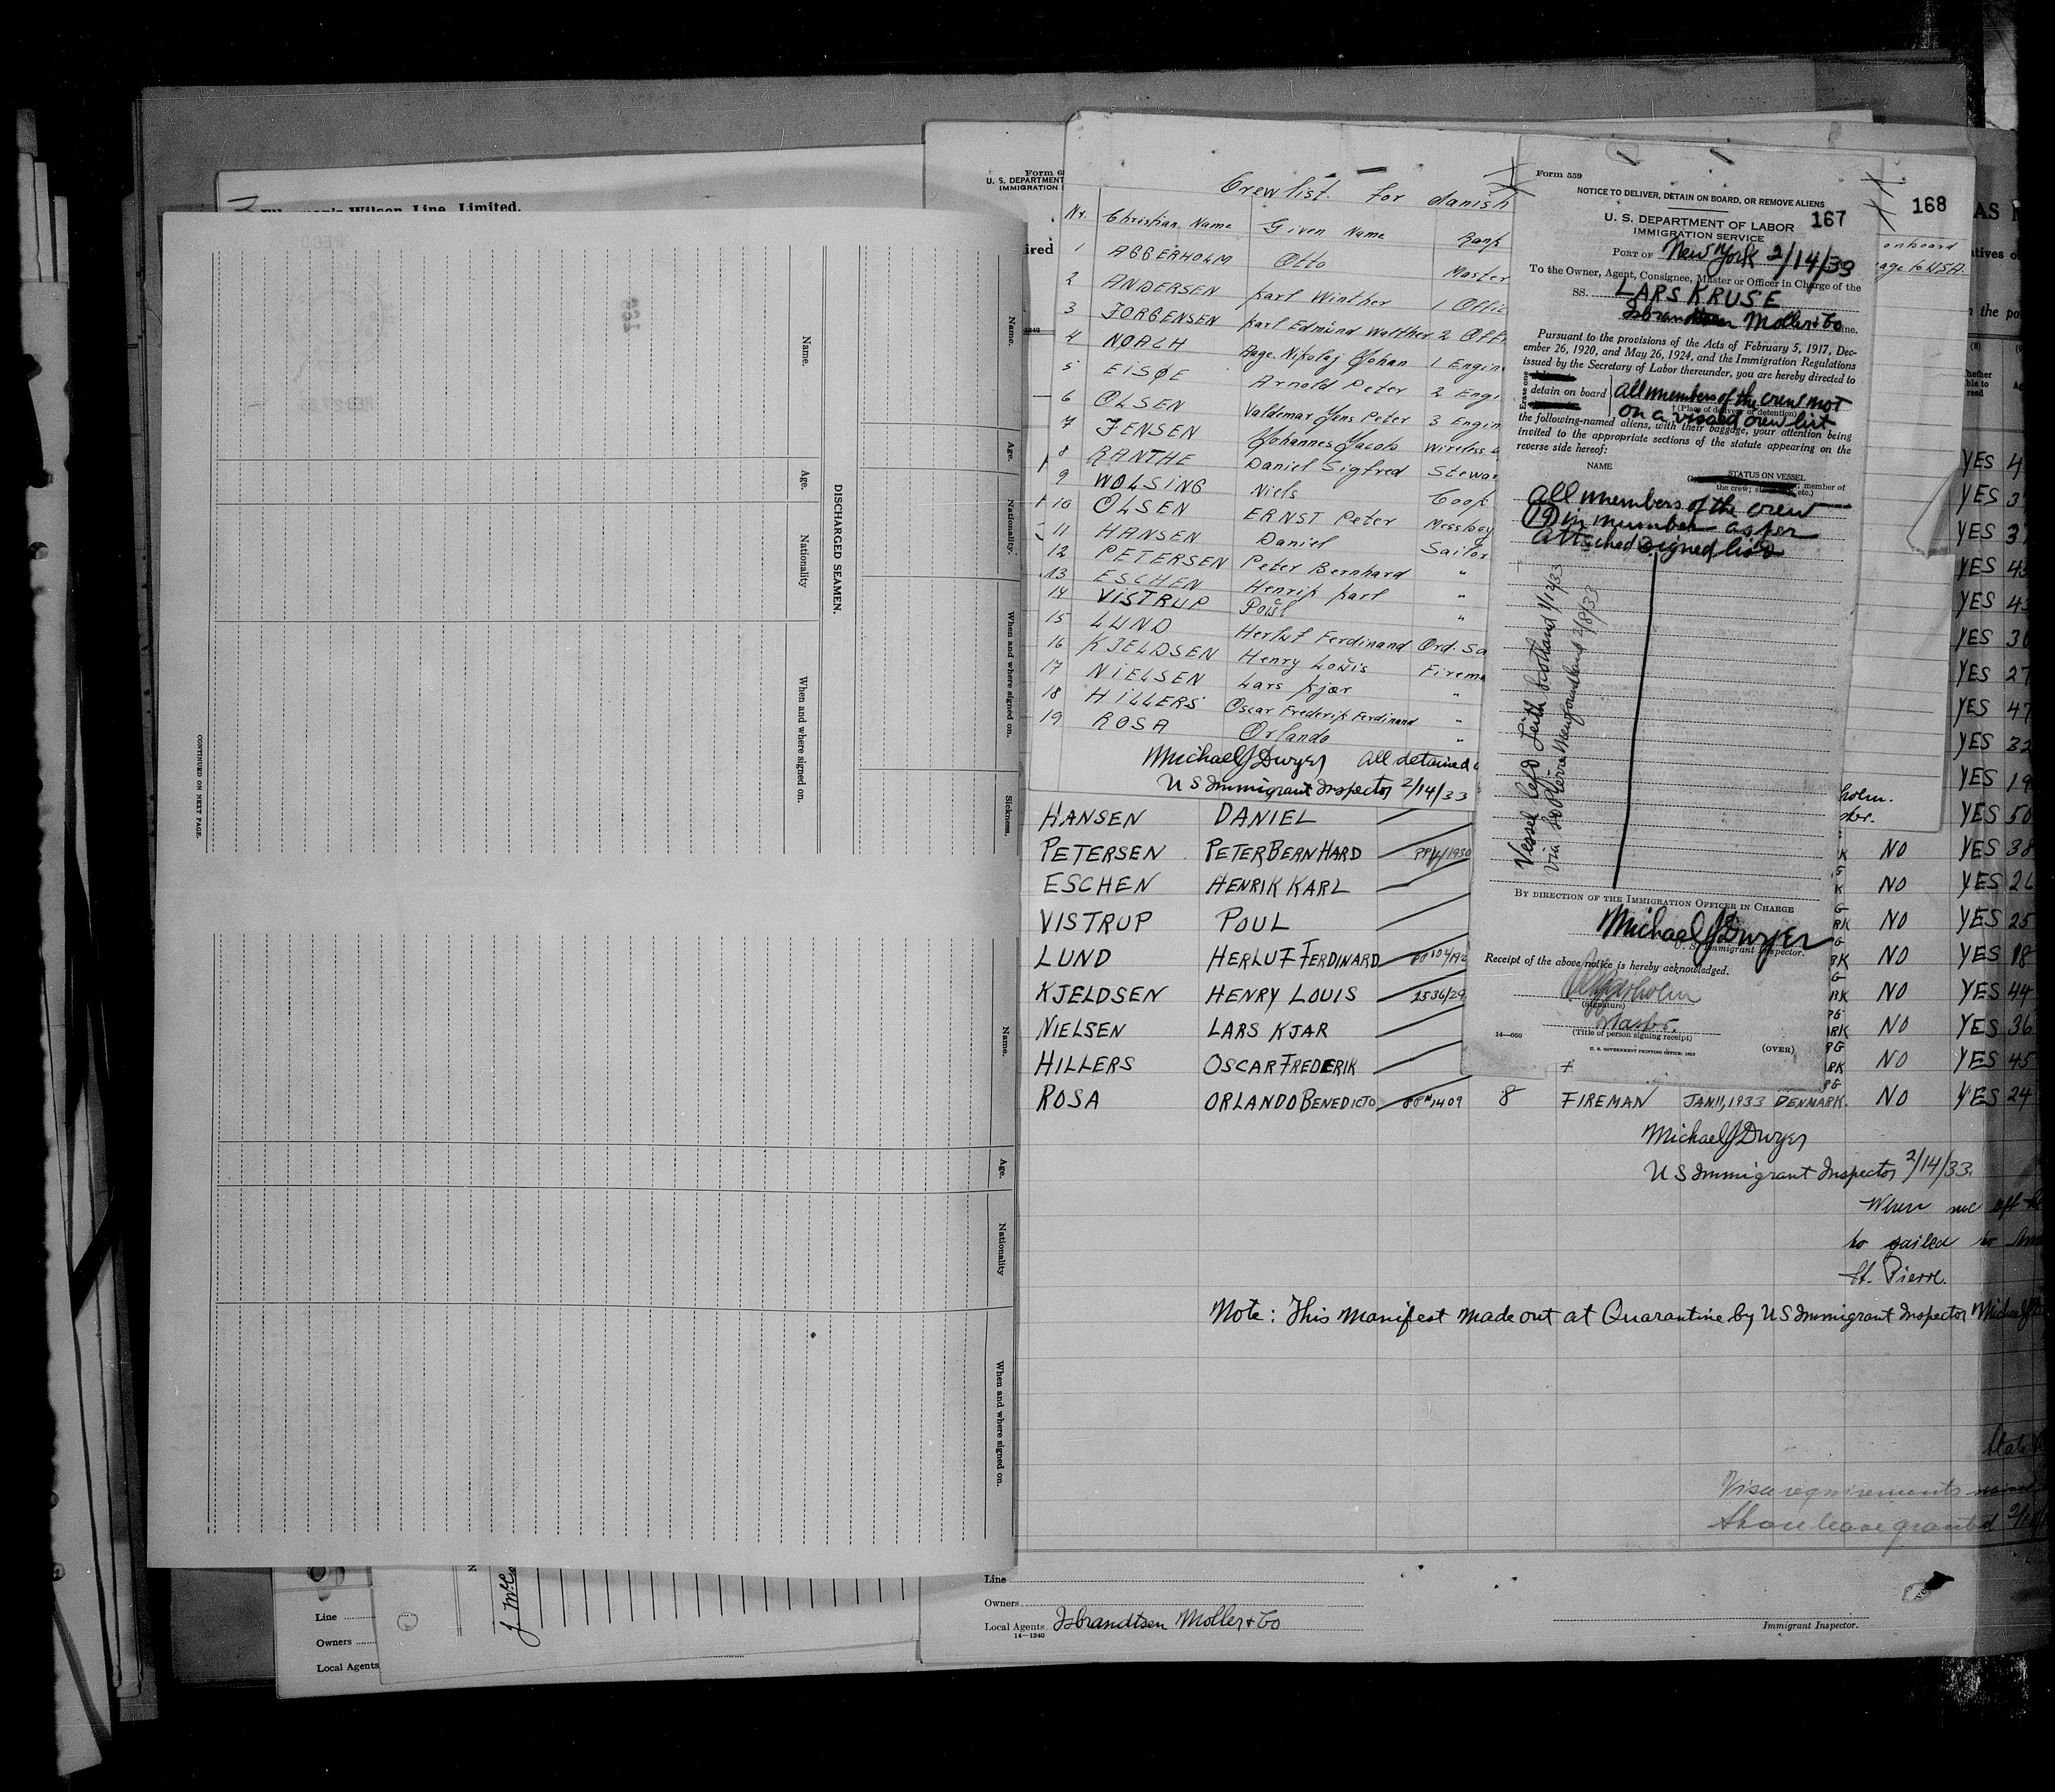 Ellerman's Wilson Line, Limited.
Name.
Age.
Nationality.
When and where signed on.
Sickness.
DISCHARGED SEAMEN.
Name.
Age.
Nationality
When and where signed on.
CONTINUED ON NEXT PAGE.
Name.
Age.
Nationality
When and where signed on.
Line
Owners
Local Agents
Form 6
U. S. DEPARTMENT
IMMIGRATION
Crew list. for danish
Nr. Christian Name Given Name Rank
1 AGGERHOLM Otto Master
2 ANDERSEN Karl Winther 1 Offic
3 JORGENSEN Karl Edmund Walther 2 Off
4 NOACH Aage Nikolaj Johan 1 Engin
5 EISØE Arnold Peter 2 Engi
6 OLSEN Valdemar Jens Peter 3 Engin
7 JENSEN Johannes Jacob Wireless
8 RANTHE Daniel Sigfred Stewa
9 WOLSING Niels Cook
10 OLSEN ERNST Peter Messboy
11 HANSEN Daniel Sailor
12 PETERSEN Peter Bernhard "
13 ESCHEN Henrik Karl "
14 VISTRUP Poul "
15 LUND Herluf Ferdinand Ord. Sa
16 KJELDSEN Henry Louis Firema
17 NIELSEN Lars Kjær "
18 HILLERS Oscar Frederik Ferdinand "
19 ROSA Orlando "
Michael J Dwyer All detained
US Immigrant Inspector 2/14/33
Form 559
NOTICE TO DELIVER, DETAIN ON BOARD, OR REMOVE ALIENS
U. S. DEPARTMENT OF LABOR 167
IMMIGRATION SERVICE
PORT OF New York 2/14/33
To the Owner, Agent, Consignee, Master or Officer in Charge of the
SS. LARS KRUSE
Isbrandtsen Moller & Co Line.
Pursuant to the provisions of the Acts of February 5, 1917, Dec-
ember 26, 1920, and May 26, 1924, and the Immigration Regulations
issued by the Secretary of Labor thereunder, you are hereby directed to
Erase one
detain on board All members of the crew not
(Place of delivery or detention)
on a visaed crew list
the following-named aliens, with their baggage, your attention being
invited to the appropriate sections of the statute appearing on the
reverse side hereof:
NAME STATUS ON VESSEL
member of
the crew; etc.)
All members of the crew
(19) in number as per
attached signed list
Vessel left Leith Scotland 1/12/33
Via St Pierre Newfoundland 2/8/33
BY DIRECTION OF THE IMMIGRATION OFFICER IN CHARGE
Michael J Dwyer
U. S. Immigrant Inspector.
Receipt of the above notice is hereby acknowledged.
(Signature)
Master.
(Title of person signing receipt)
U. S. GOVERNMENT PRINTING OFFICE: 1929
(OVER)
168
onboard
age to USA.
HANSEN DANIEL YES 50
PETERSEN PETER BERNHARD NO YES 38
ESCHEN HENRIK KARL NO YES 26
VISTRUP POUL NO YES 25
LUND HERLUF FERDINARD NO YES 18
KJELDSEN HENRY LOUIS 2536/29 NO YES 44
NIELSEN LARS KJAR NO YES 36
HILLERS OSCAR FREDERIK NO YES 45
ROSA ORLANDO BENEDICTO 1409 8 FIREMAN JAN 11, 1933 DENMARK NO YES 24
Michael J Dwyer
US Immigrant Inspector 2/14/33.
When we
to sailed to
St. Pierre.
Note: This manifest made out at Quarantine by US Immigrant Inspector Michael J
Visa requirements
Shore leave granted
Line
Owners
Local Agents Isbrandtsen Moller & Co
14-1240
Immigrant Inspector.